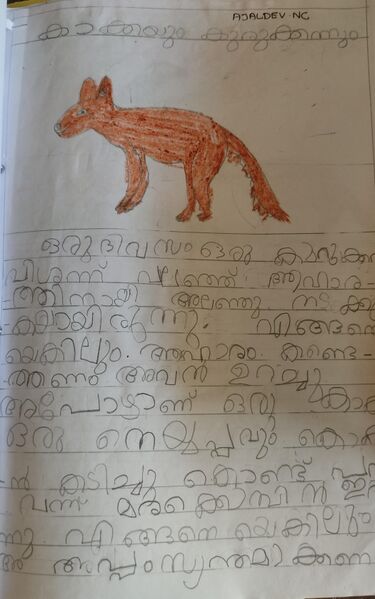 AJALDEV NC
കാക്കയും കുറുക്കനും
ഒരു ദിവസം ഒരു കുറുക്ക
വിശന്ന് വലഞ്ഞ് ആഹാര-
-ത്തിനായി അലഞ്ഞു നടക്കു
കയായിരുന്നു. എങ്ങനെ
യെങ്കിലും ആഹാരം കണ്ടെ-
-ത്തണം അവൻ ഉറച്ചു
അപ്പോഴാണ് ഒരു കാക്ക
ഒരു നെയ്യപ്പവും കൊ
ൻ കടിച്ചു കൊണ്ട്
വന്ന് മരക്കൊമ്പിൽ ഇ
ന്നു എങ്ങനെയെങ്കിലും
ആ അപ്പം സ്വന്തമാക്കണ